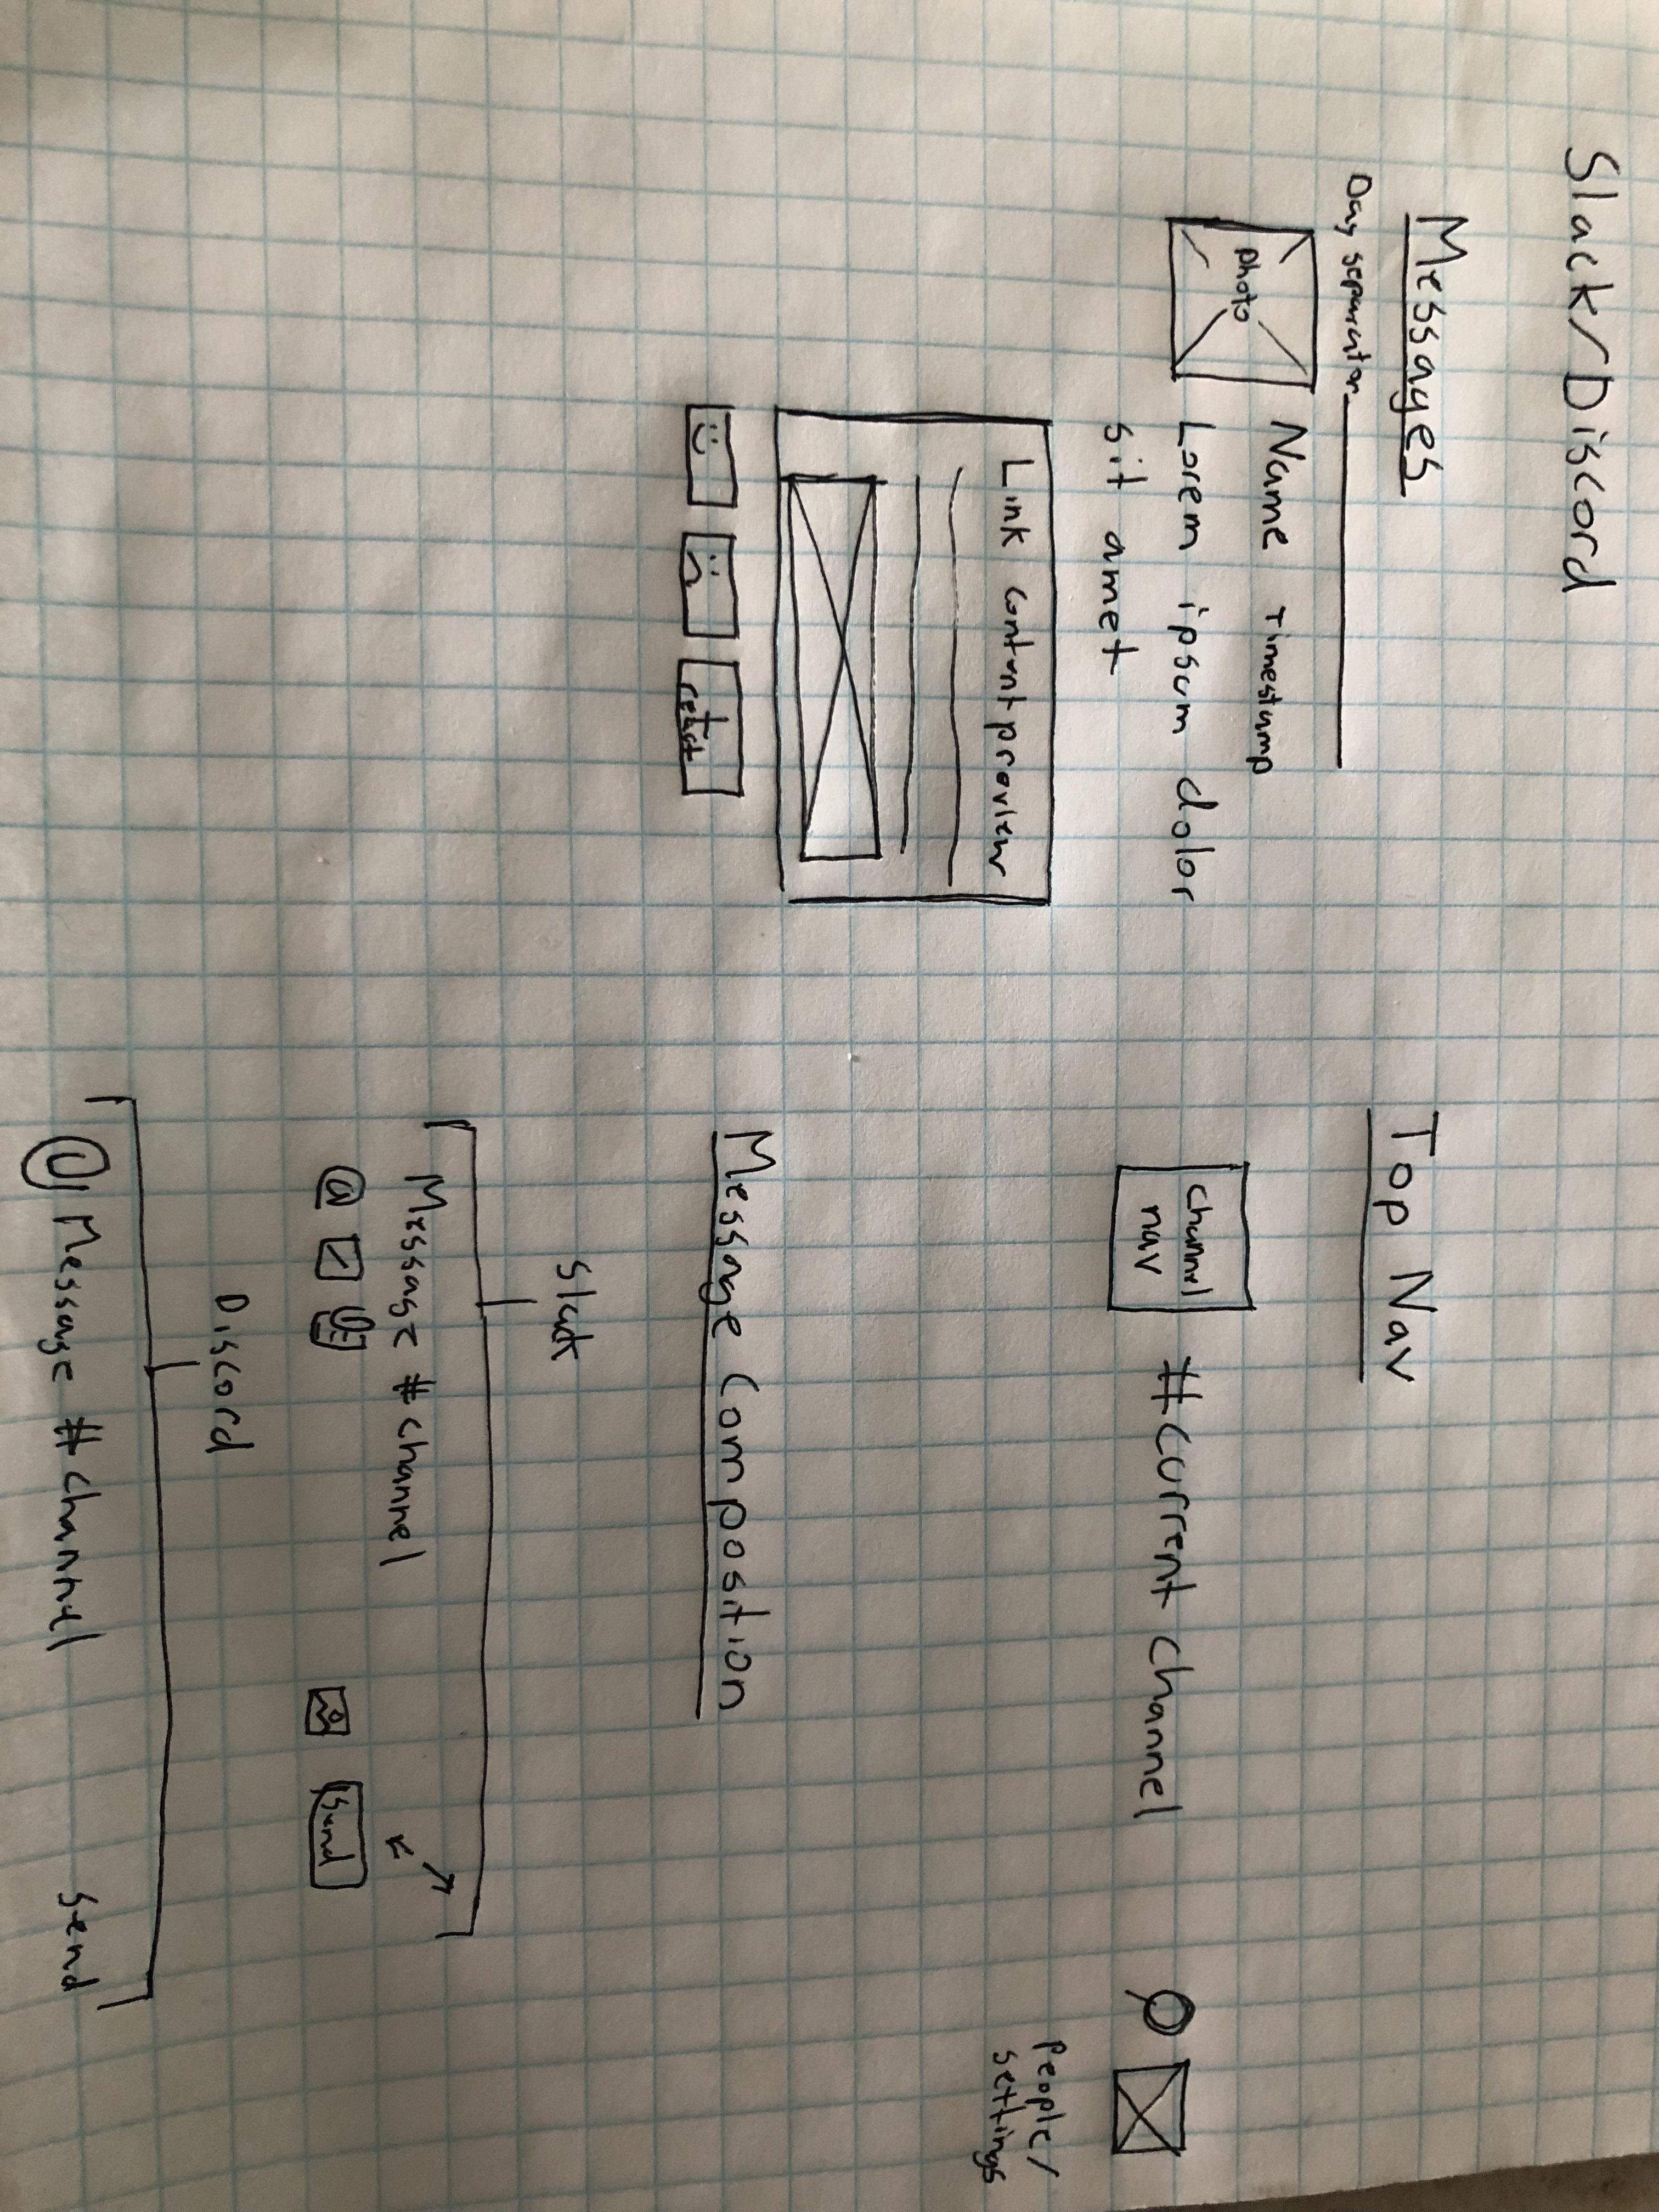 Slack/Discord
Messages
Day separator
Photo
Name Timestamp
Lorem ipsum dolor
sit amet
Link content preview
+
react
Top Nav
Channel
nav
#current channel
People/
settings
Message Composition
Slack
Message #channel
@
Send
Discord
Message #channel
Send